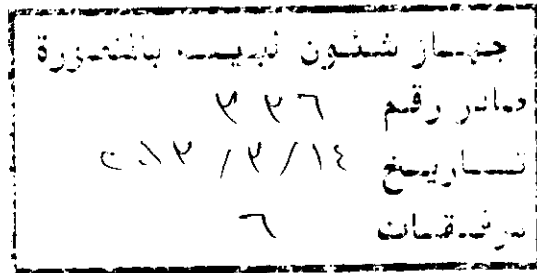 جهاز شئون البيئة بالمنصورة
صادر رقم ٣٣٦
تاريخ ١٤/٣/٢٠١٣
مرفقات ٦